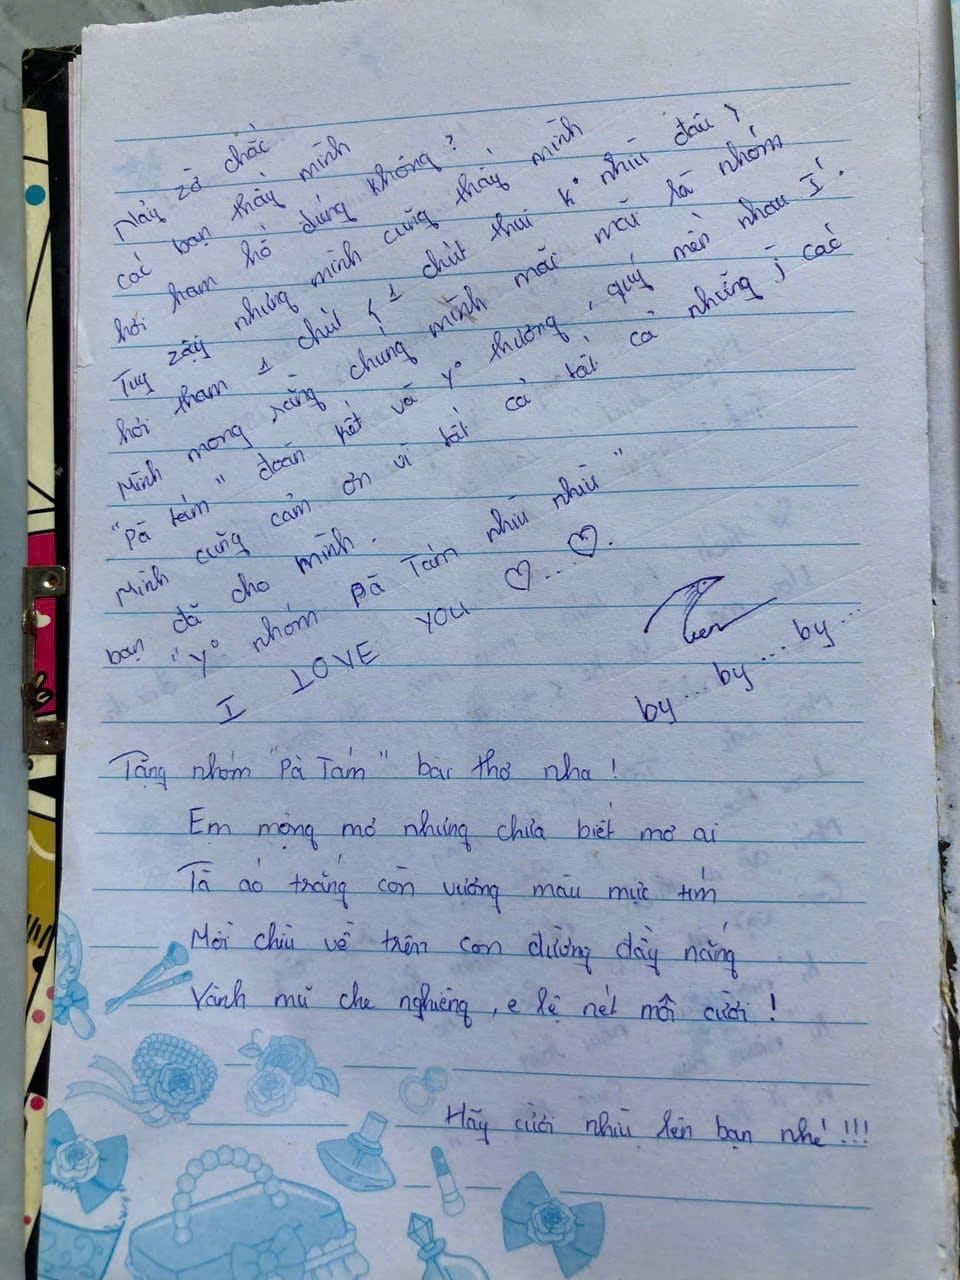 Nảy zờ chắc
các bạn thấy mình
hơi ham hố đúng không?
Tuy zậy nhưng mình cũng thấy mình
hơi tham 1 chút { 1 chút thui k° nhìu đâu }
Mình mong rằng chúng mình mãi mãi là nhóm
"Pà tám" đoàn kết và y° thương, quý mến nhau I'.
Mình cũng cảm ơn vì tất cả tất cả những j các
bạn đã cho mình.
"Y° nhóm Pà Tám nhìu nhìu"
I LOVE YOU ♡...♡.
by... by... by...
Tặng nhóm "Pà Tám" bài thơ nha!
Em mộng mơ nhưng chưa biết mơ ai
Tà áo trắng còn vướng màu mực tím
Mỗi chiù về trên con đường đầy nắng
Vành mũ che nghiêng, e lệ nét môi cười!
Hãy cười nhìu lên bạn nhé!!!